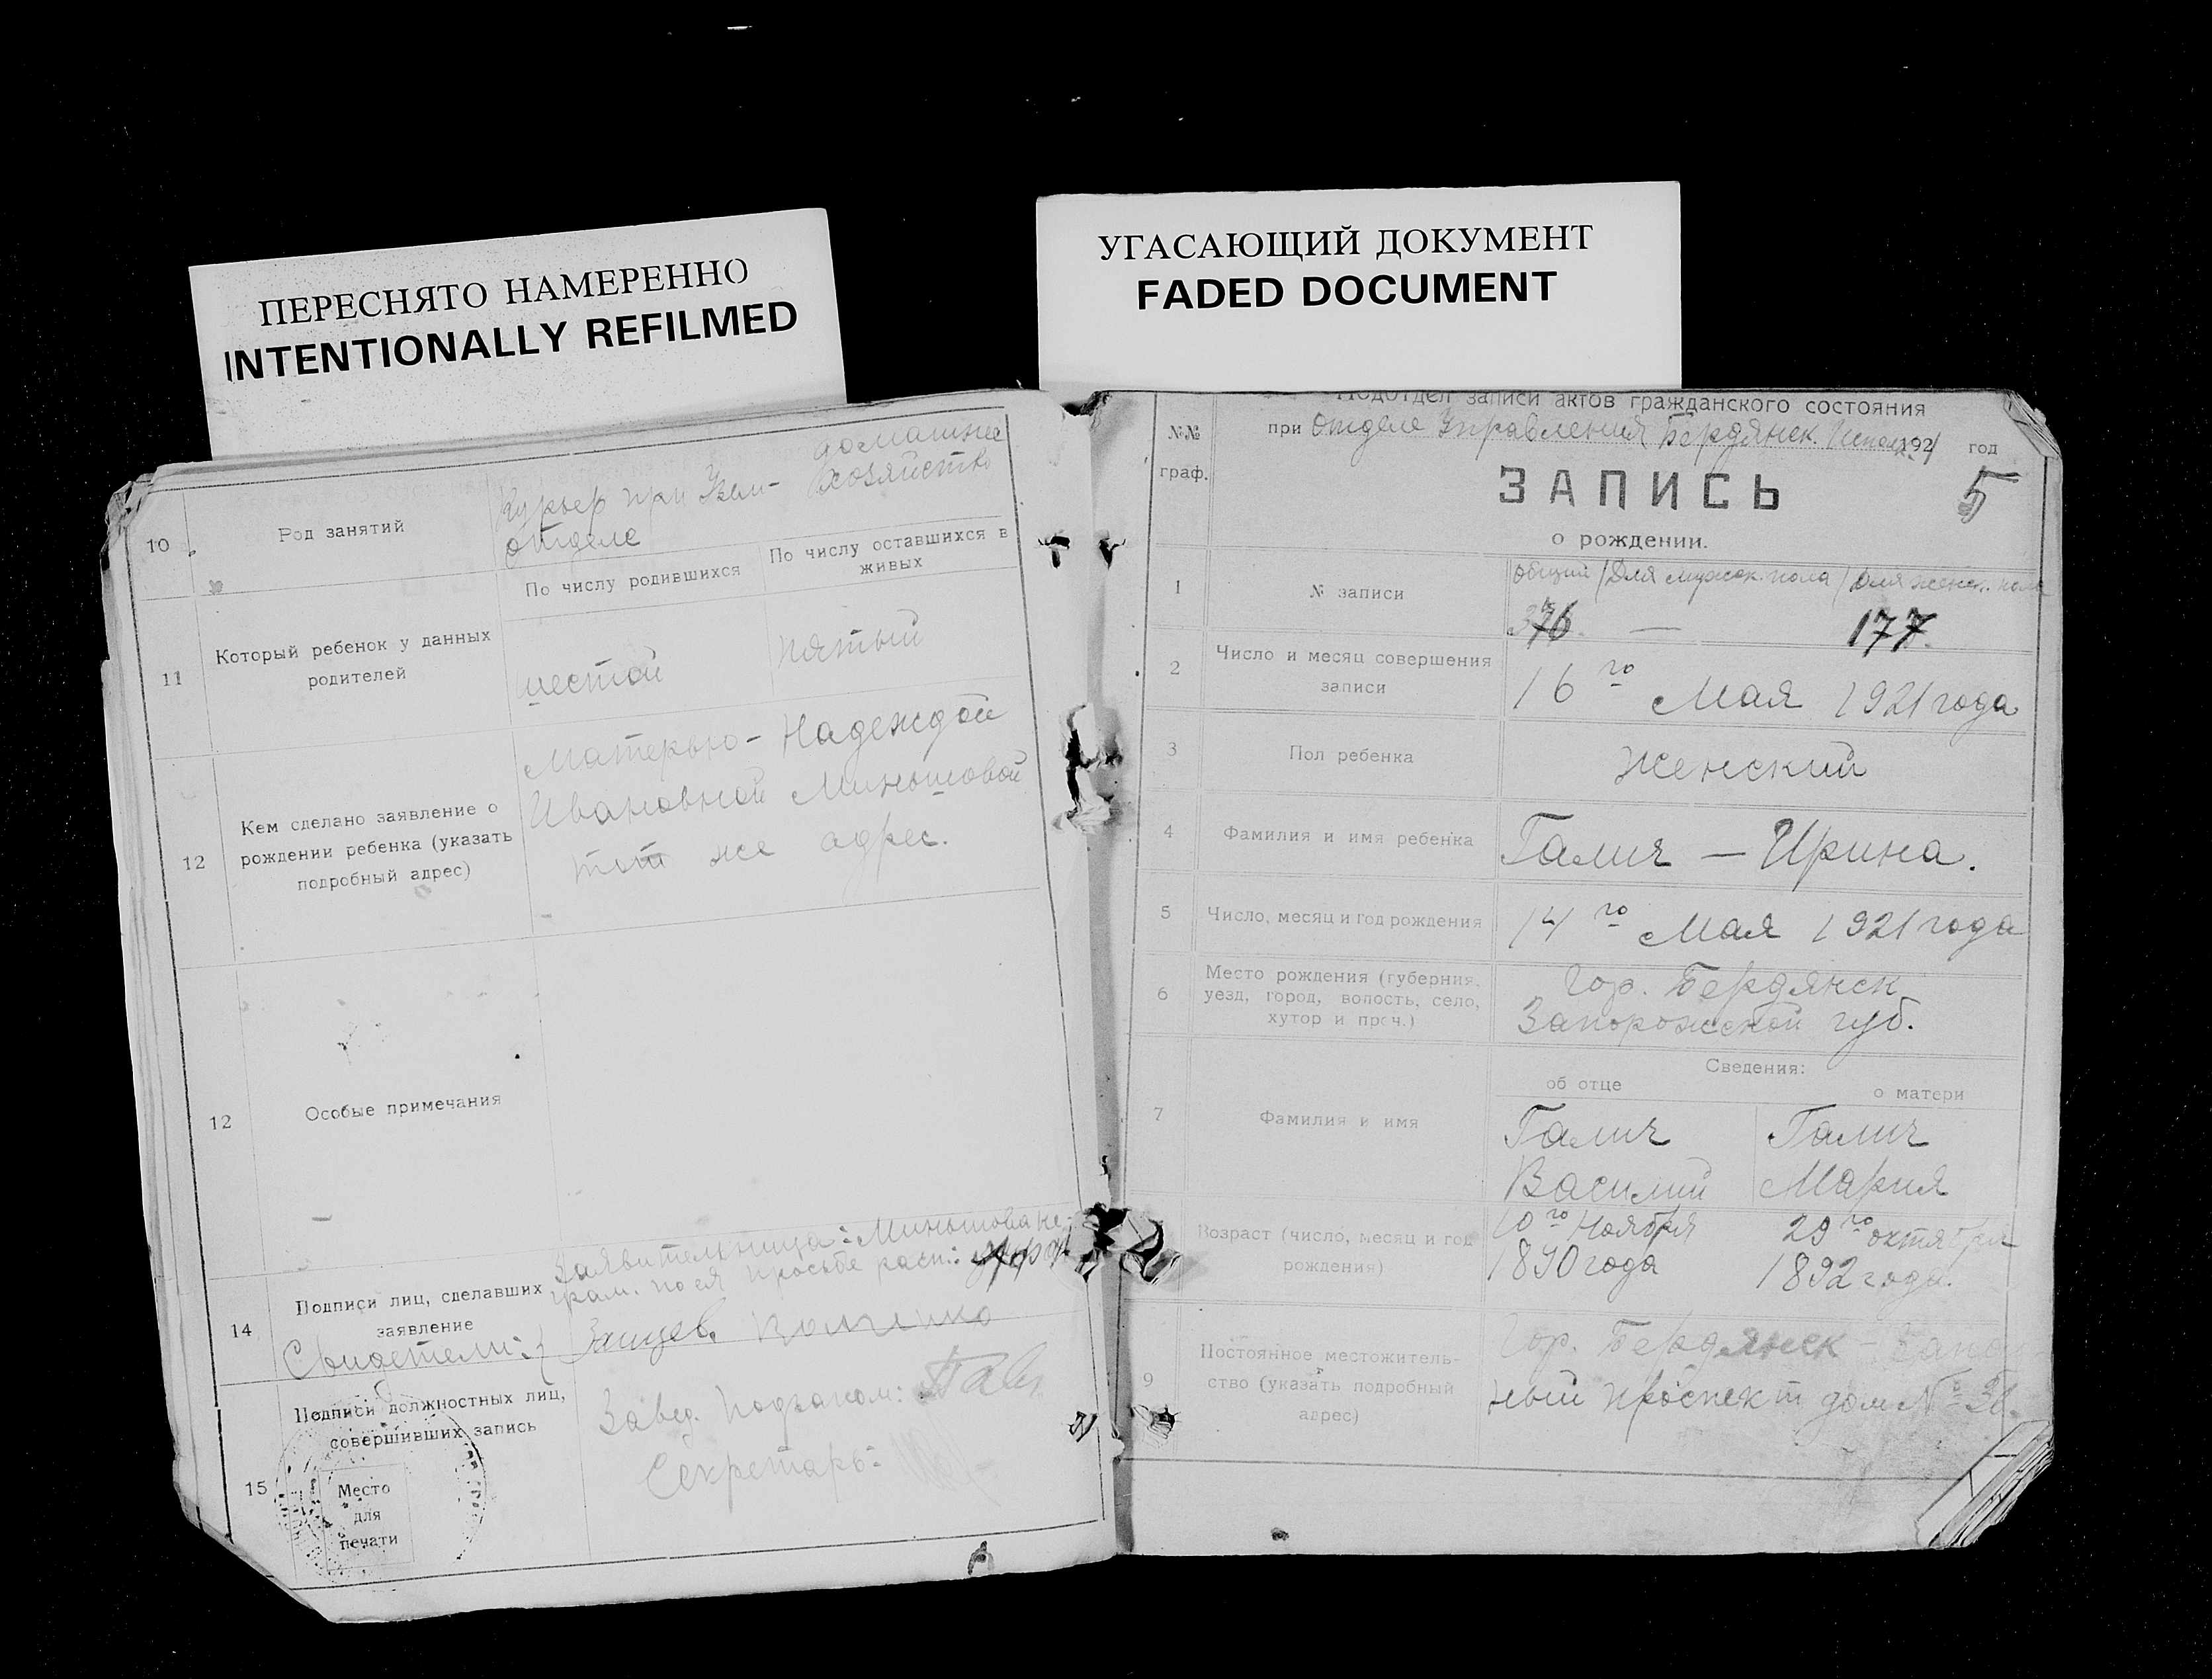 ПЕРЕСНЯТО НАМЕРЕННО
INTENTIONALLY REFILMED
УГАСАЮЩИЙ ДОКУМЕНТ
FADED DOCUMENT
10
Род занятий
Курьер при
отделе
домашнее
хозяйство
11
Который ребенок у данных
родителей
По числу родившихся
По числу оставшихся в
живых
шестой
пятый
12
Кем сделано заявление о
рождении ребенка (указать
подробный адрес)
Матерью - Надеждой
Ивановной Миньшовой
тот же адрес.
12
Особые примечания
14
Подписи лиц, сделавших
заявление
Свидетели:
Заявительница: Миньшова не-
грам. по ея просьбе расп.:
15
Подписи должностных лиц,
совершивших запись
Место
для
печати
Завед. Подзагсом:
Секретарь:
№№
граф.
Подотдел записи актов гражданского состояния
при Отделе Управления Бердянск. 1921 год
ЗАПИСЬ
5
о рождении.
1
№ записи
Общий / Для мужск. пола / Для женск. пола
— 177.
2
Число и месяц совершения
записи
16го Мая 1921 года
3
Пол ребенка
Женский
4
Фамилия и имя ребенка
Галич — Ирина.
5
Число, месяц и год рождения
14го Мая 1921 года
6
Место рождения (губерния,
уезд, город, волость, село,
хутор и проч.)
Гор. Бердянск
Запорожской губ.
Сведения:
об отце
о матери
7
Фамилия и имя
Галич
Василий
Галич
Мария
Возраст (число, месяц и год
рождения)
10го Ноября
1890 года
29го октября
1892 года.
9
Постоянное местожитель-
ство (указать подробный
адрес)
Гор. Бердянск -
ный проспект дом №